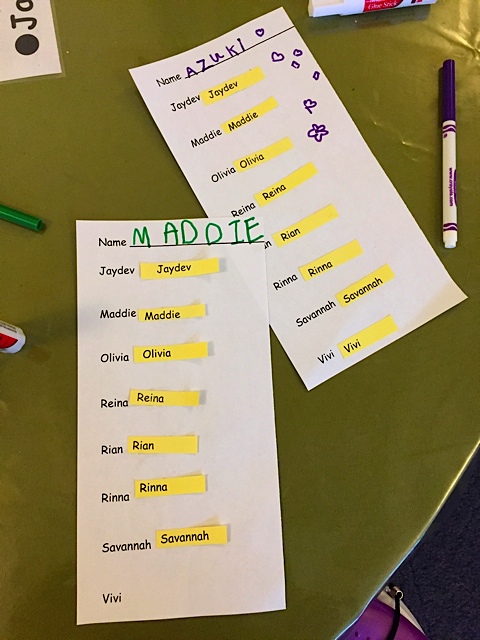 Ja
Glue Stick
Name AZUKI
Jaydev Jaydev
Maddie Maddie
Olivia Olivia
Reina Reina
Rian
Rinna Rinna
Savannah Savannah
Vivi Vivi
Name MADDIE
Jaydev Jaydev
Maddie Maddie
Olivia Olivia
Reina Reina
Rian Rian
Rinna Rinna
Savannah Savannah
Vivi